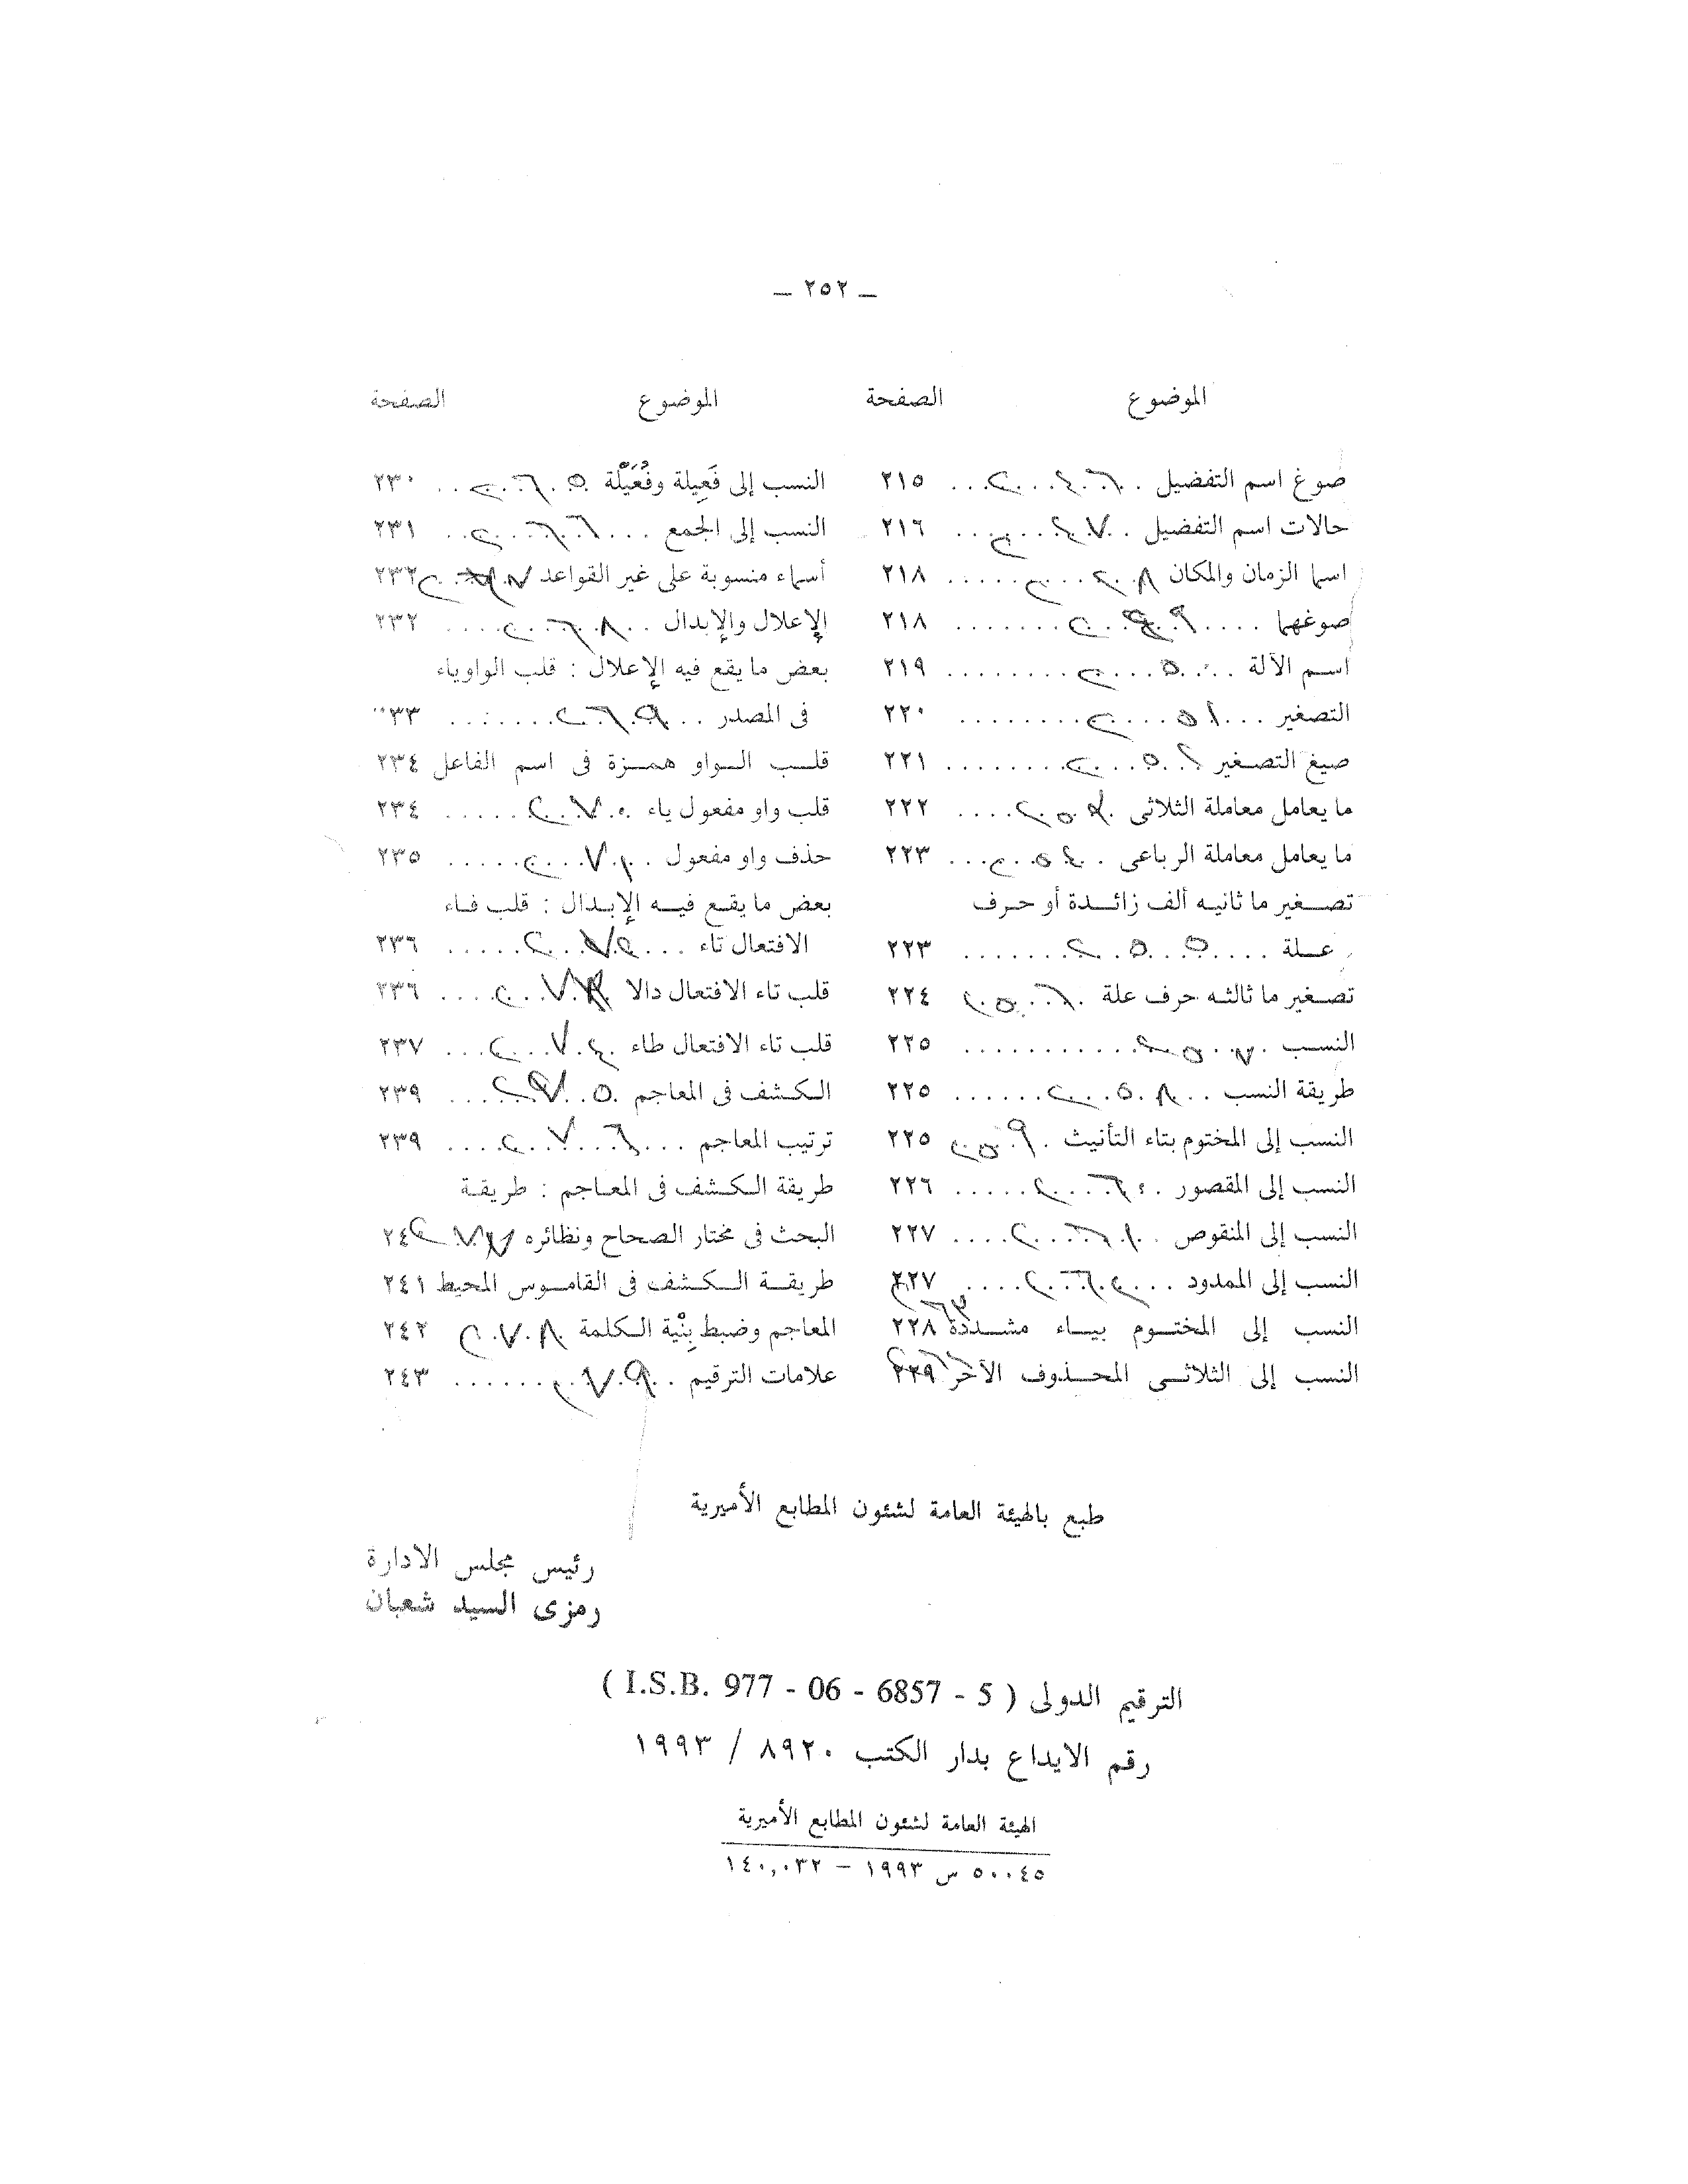 ــ ٢٥٢ ــ
الموضوع الصفحة
صوغ اسم التفضيل ........ ٢١٥
حالات اسم التفضيل ........ ٢١٦
اسما الزمان والمكان ........ ٢١٨
صوغهما ........ ٢١٨
اسم الآلة ........ ٢١٩
التصغير ........ ٢٢٠
صيغ التصغير ........ ٢٢١
ما يعامل معاملة الثلاثى ........ ٢٢٢
ما يعامل معاملة الرباعى ........ ٢٢٣
تصغير ما ثانيه ألف زائدة أو حرف
علة ........ ٢٢٣
تصغير ما ثالثه حرف علة ........ ٢٢٤
النسب ........ ٢٢٥
طريقة النسب ........ ٢٢٥
النسب إلى المختوم بتاء التأنيث ........ ٢٢٥
النسب إلى المقصور ........ ٢٢٦
النسب إلى المنقوص ........ ٢٢٧
النسب إلى الممدود ........ ٢٢٧
النسب إلى المختوم بياء مشددة ٢٢٨
النسب إلى الثلاثى المحذوف الآخر ٢٢٩
الموضوع الصفحة
النسب إلى فَعِيلة وفُعَيْلة ........ ٢٣٠
النسب إلى الجمع ........ ٢٣١
أسماء منسوبة على غير القواعد ٢٣٢
الإعلال والإبدال ........ ٢٣٢
بعض ما يقع فيه الإعلال : قلب الواو ياء
فى المصدر ........ ٣٣
قلب الواو همزة فى اسم الفاعل ٢٣٤
قلب واو مفعول ياء ........ ٢٣٤
حذف واو مفعول ........ ٢٣٥
بعض ما يقع فيه الإبدال : قلب فاء
الافتعال تاء ........ ٢٣٦
قلب تاء الافتعال دالا ........ ٢٣٦
قلب تاء الافتعال طاء ........ ٢٣٧
الكشف فى المعاجم ........ ٢٣٩
ترتيب المعاجم ........ ٢٣٩
طريقة الكشف فى المعاجم : طريقة
البحث فى مختار الصحاح ونظائره
طريقة الكشف فى القاموس المحيط ٢٤١
المعاجم وضبط بِنْية الكلمة ٢٤٢
علامات الترقيم ........ ٢٤٣
طبع بالهيئة العامة لشئون المطابع الأميرية
رئيس مجلس الادارة
رمزى السيد شعبان
الترقيم الدولى ( I.S.B. 977 - 06 - 6857 - 5 )
رقم الايداع بدار الكتب ٨٩٢٠ / ١٩٩٣
الهيئة العامة لشئون المطابع الأميرية
٥٠٠٤٥ س ١٩٩٣ – ١٤٠,٠٣٢